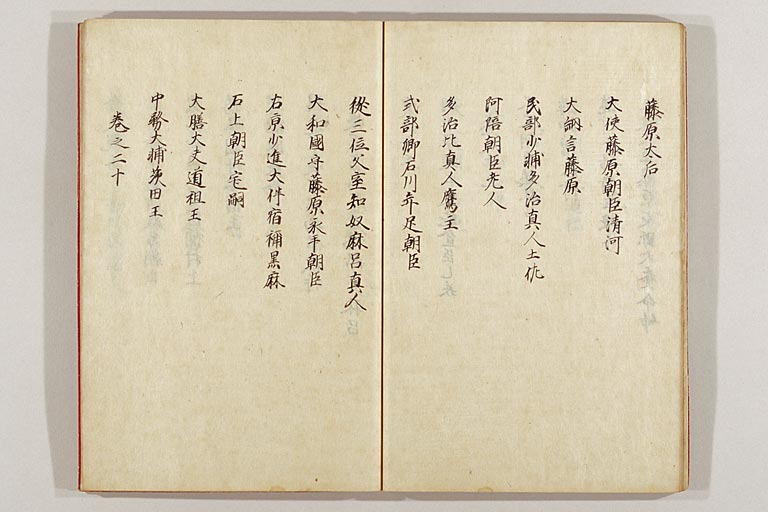 藤原太后
大使藤原朝臣清河
大納言藤原
民部少輔多治真人土作
阿陪朝臣老人
多治比真人鷹主
式部卿石川弃足朝臣
從三位文室知奴麻呂真人
大和國守藤原永平朝臣
右京少進大伴宿祢黒麻
石上朝臣宅嗣
大膳大夫道祖王
中務大輔茨田王
巻之二十